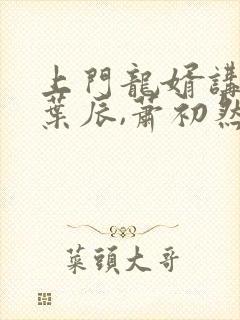 上門龍婿講
葉辰,蕭初然
菜頭大哥